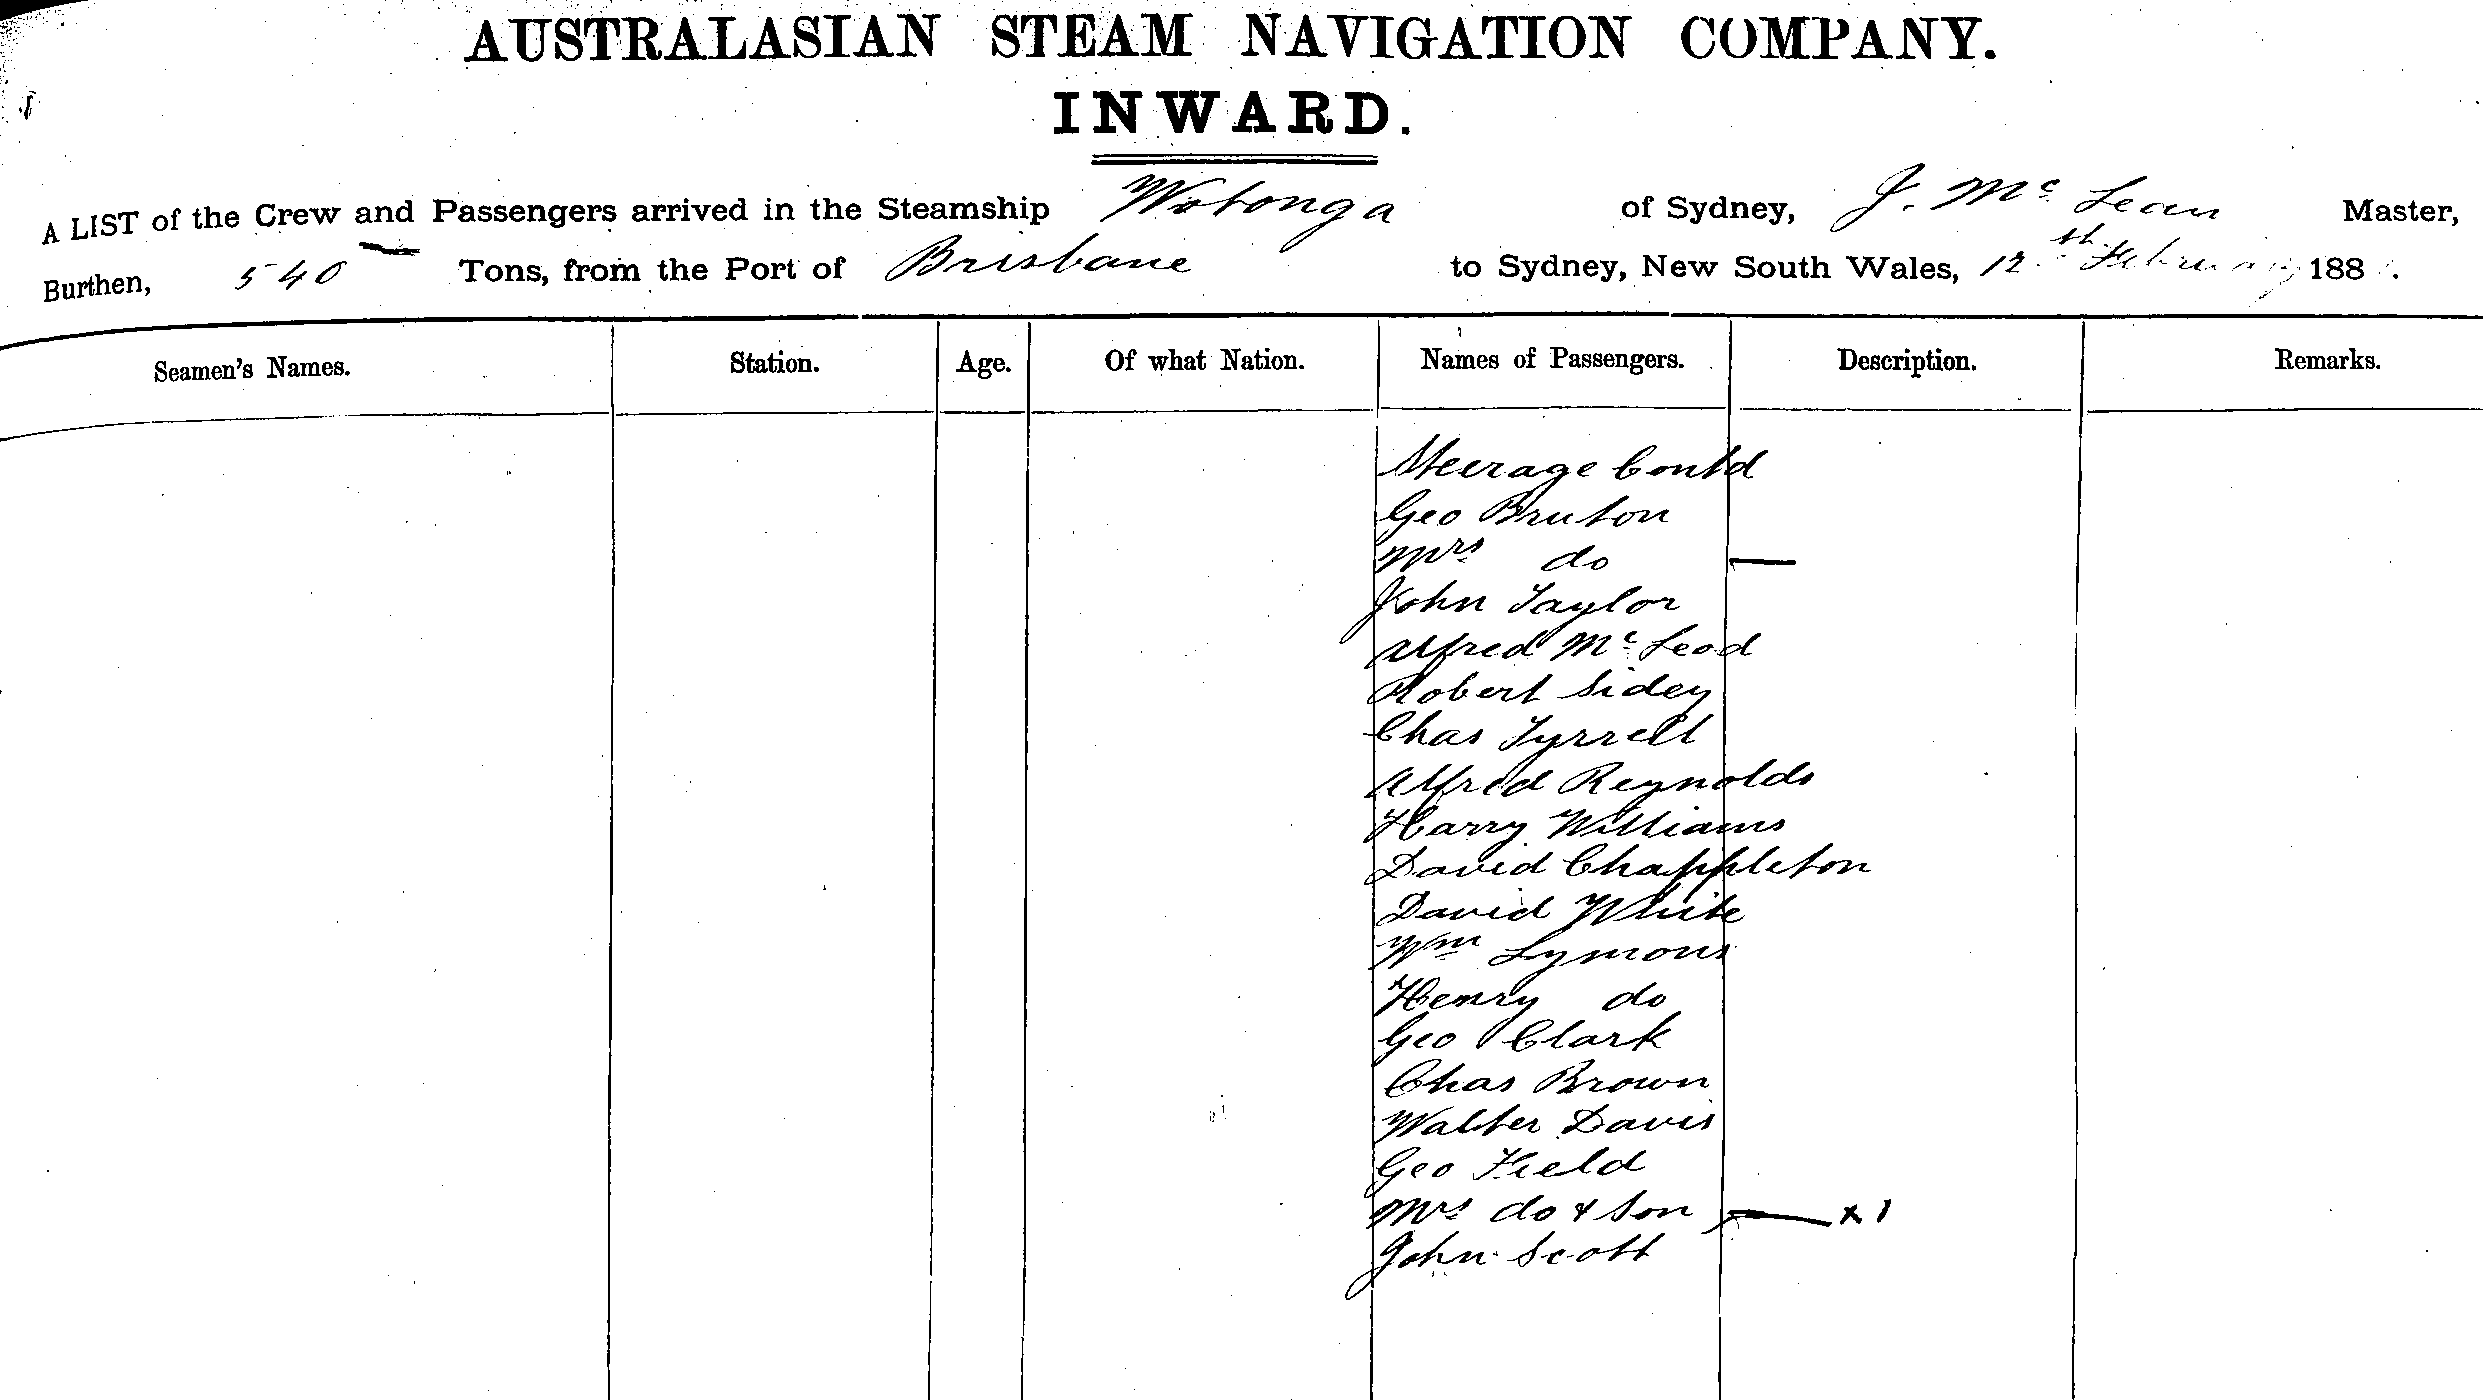 AUSTRALASIAN STEAM NAVIGATION COMPANY.
INWARD.
A LIST of the Crew and Passengers arrived in the Steamship Wotonga of Sydney, J. Mc Lean Master,
Burthen, 540 Tons, from the Port of Brisbane to Sydney, New South Wales, 12th February 188
Seamen's Names. Station. Age. Of what Nation. Names of Passengers. Description. Remarks.
Steerage Contd
Geo Bruton
Mrs do —
John Taylor
Alfred Mc Leod
Robert Sidey
Chas Tyrrell
Alfred Reynolds
Harry Williams
David Chappleton
David White
Wm Lymons
Henry do
Geo Clark
Chas Brown
Walter Davis
Geo Field
Mrs do & Son — x 1
John Scott